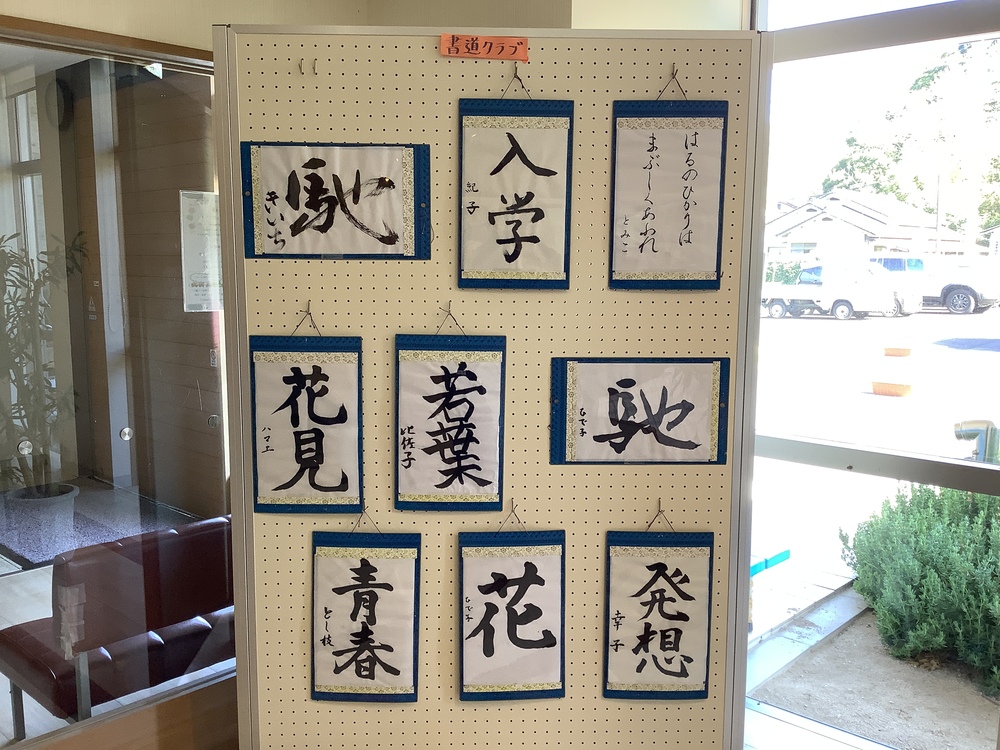 書道クラブ
馳
きいち
入学
紀子
はるのひかりは
まぶしくあふれ
とみこ
花見
ハマエ
若葉
比佐子
馳
ひで子
青春
とし枝
花
ひで子
発想
幸子